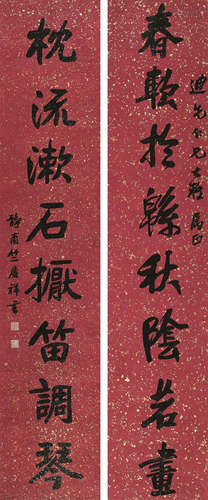 迪先仁兄大雅属正
春軟於緜秋陰若畫
枕流漱石擫笛調琴
靜甫竺麐祥書